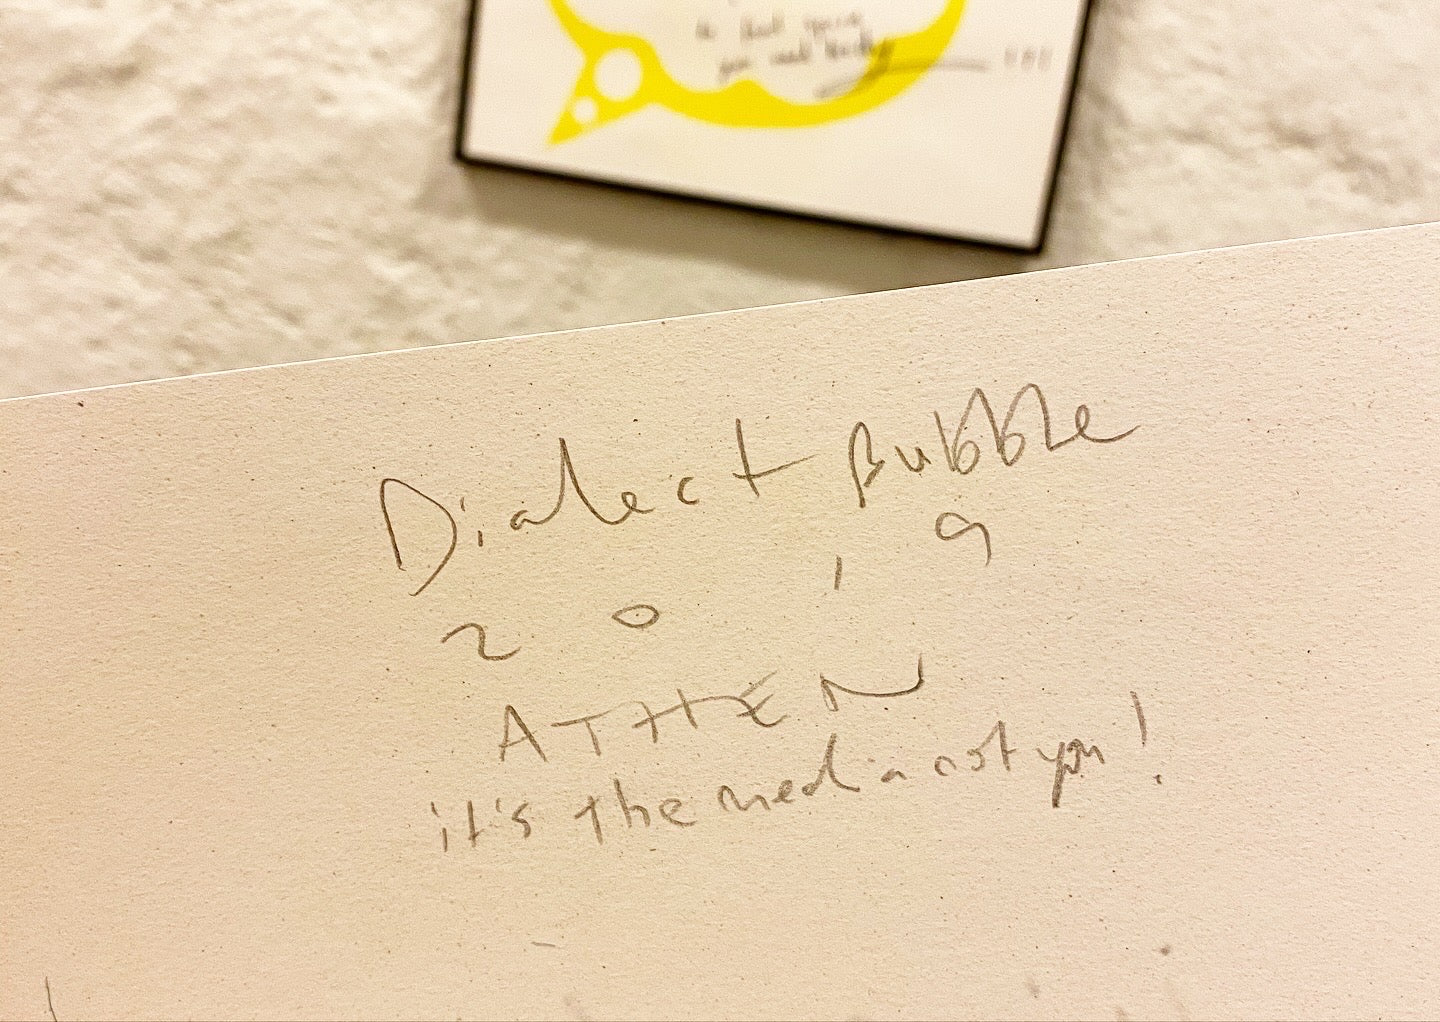 you
Dialect Bubble
2 0 1 9
ATHEN
it's the media not you!